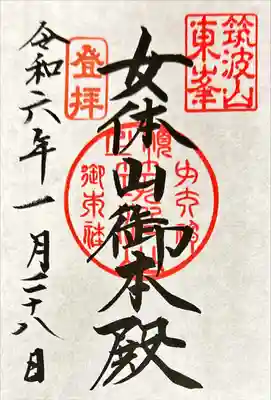 筑波山
東峯
女体山御本殿
御本社
登拝
令和六年一月二十八日